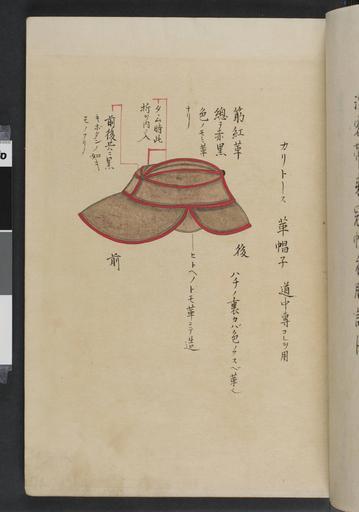 カリトース 革帽子 道中専コレヲ用
筋紅革
總テ赤黒
色ノモミ革
ナリ
タゝム時此
折リ内ヘ入
前後共ニ黒
キボタンノ如キ
モノアリ
後
ハチノ裏カバ色ノクスベ革
ヒトヘノトモ革ニテ造
前